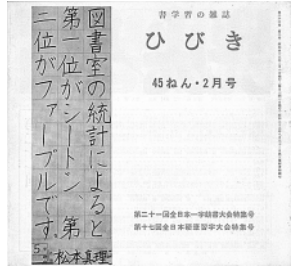 書学習の雑誌
ひびき
45ねん・2月号
図書室の統計によると
第一位がシートン、第
二位がファーブルです。
松本真理
第二十一回全日本一字
第十七回全日本硬筆習字大会特集号